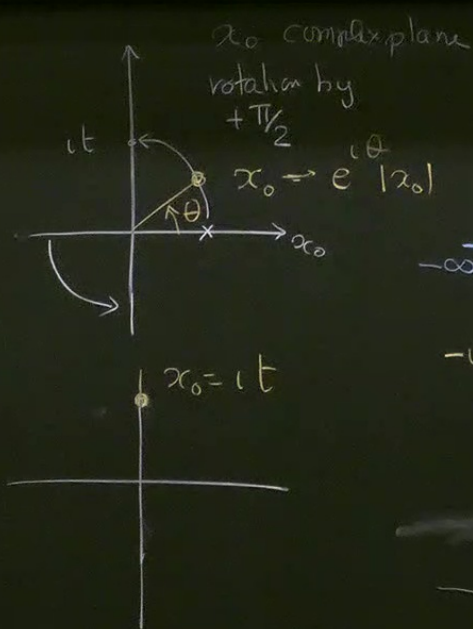 x₀ complex plane
rotation by
+ π/2
ιt
x₀ → e^{ιθ} |x₀|
θ
x₀
-∞
x₀ = ιt